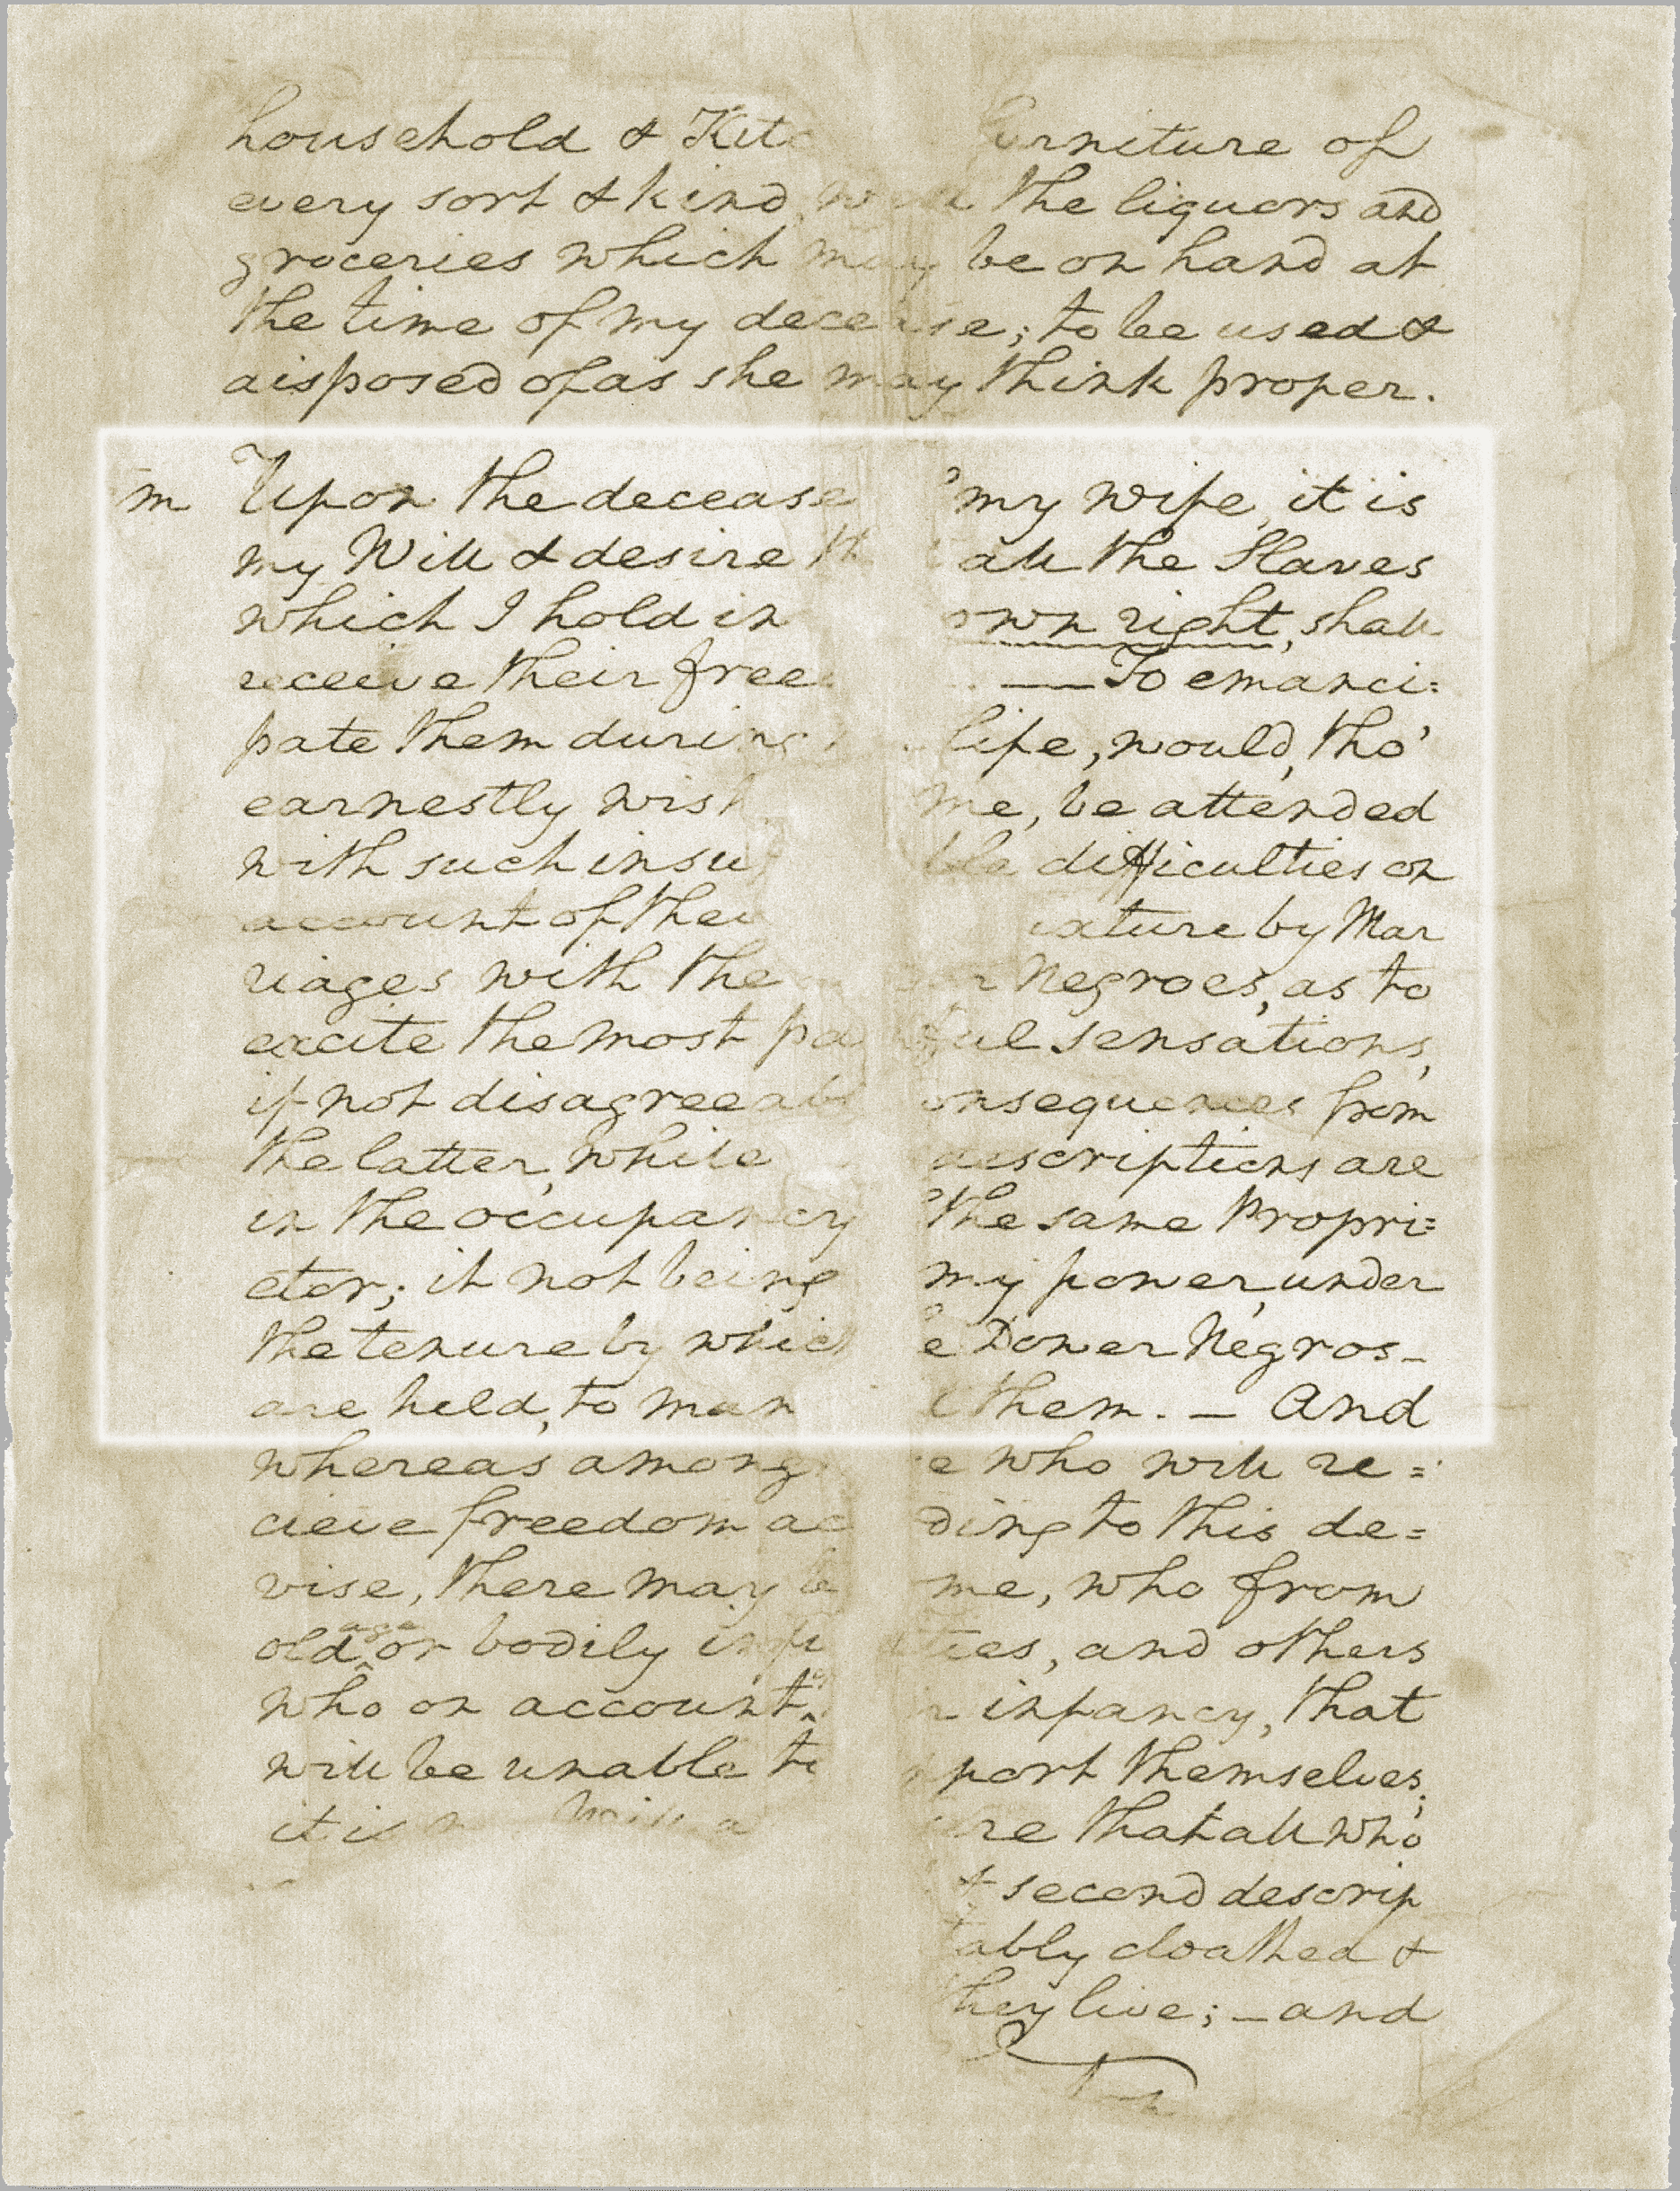 household & Kitc urniture of
every sort & kind, the liquors and
groceries which may be on hand at
the time of my decease; to be used &
disposed of as she may think proper.
m Upon the decease my wife, it is
my Will & desire th all the Slaves
which I hold in own right, shall
receive their free — To emanci=
pate them during life, would, tho'
earnestly wish me, be attended
with such insu ble difficulties on
account of thei ixture by Mar
riages with the Negroes, as to
excite the most pa nful sensations,
if not disagreeabl onsequences from
the latter, while descriptions are
in the occupancy the same Propri=
etor; it not being my power, under
the tenure by which e Dower Negros
are held, to man them. — And
whereas among e who will re=
cieve freedom ac ding to this de=
vise, there may b me, who from
old age or bodily infi ties, and others
who on account infancy, that
will be unable to pport themselves;
it is Will a re that all who
& second descrip
tably cloathed &
they live; — and